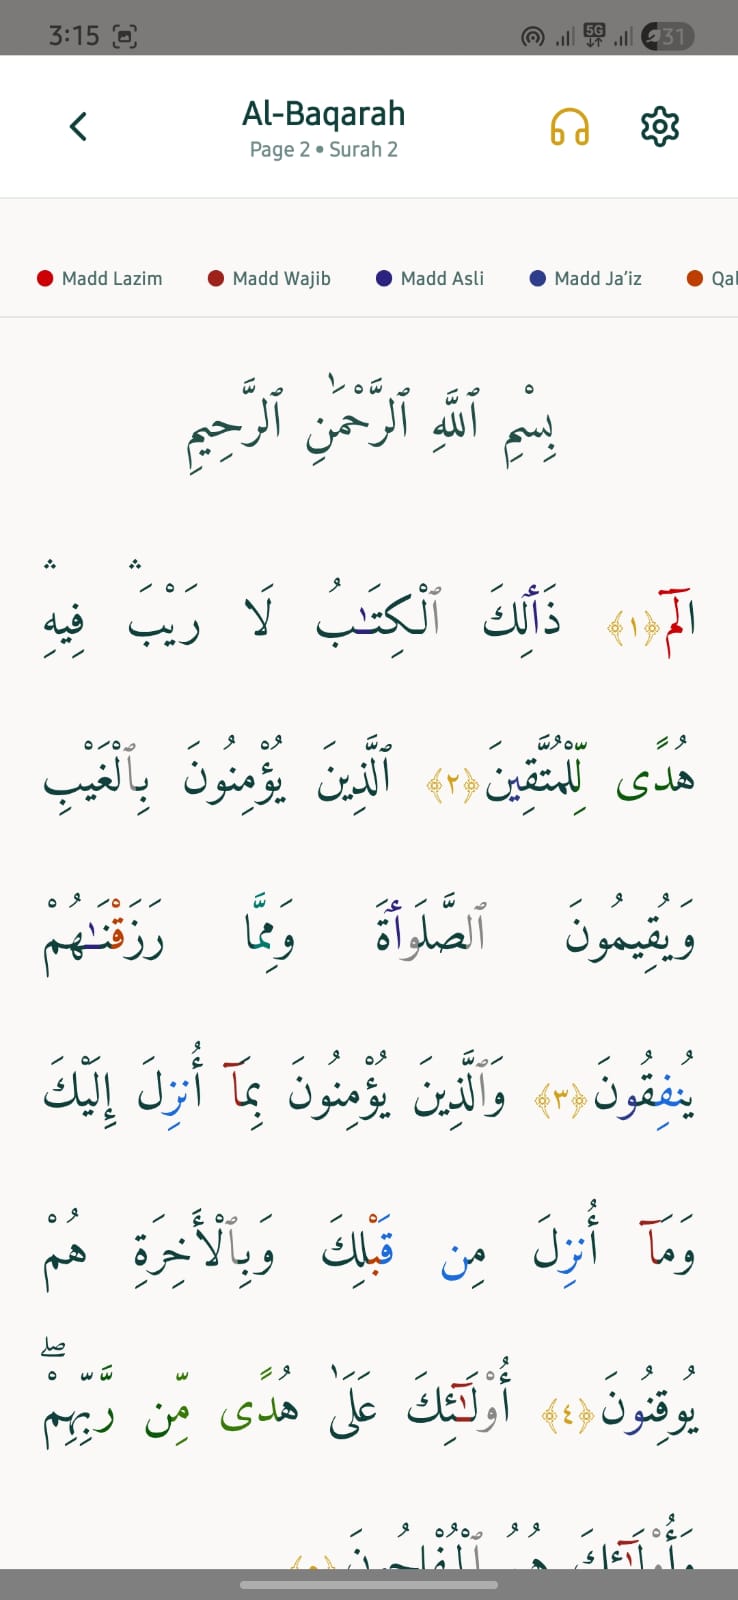 3:15 5G 31
Al-Baqarah
Page 2 • Surah 2
Madd Lazim Madd Wajib Madd Asli Madd Ja’iz Qal
بِسْمِ ٱللَّهِ ٱلرَّحْمَٰنِ ٱلرَّحِيمِ
الٓمٓ ﴿١﴾ ذَأَلِكَ ٱلْكِتَـٰبُ لَا رَيْبَ ۛ فِيهِ ۛ
هُدًى لِّلْمُتَّقِينَ ﴿٢﴾ ٱلَّذِينَ يُؤْمِنُونَ بِٱلْغَيْبِ
وَيُقِيمُونَ ٱلصَّلَوأَةَ وَمِمَّا رَزَقْنَـٰهُمْ
يُنفِقُونَ ﴿٣﴾ وَٱلَّذِينَ يُؤْمِنُونَ بِمَآ أُنزِلَ إِلَيْكَ
وَمَآ أُنزِلَ مِن قَبْلِكَ وَبِٱلْأَخِرَةِ هُمْ
يُوقِنُونَ ﴿٤﴾ أُو۟لَـٰٓئِكَ عَلَىٰ هُدًى مِّن رَّبِّهِمْ ۖ
وَأُو۟لَـٰٓئِكَ هُمُ ٱلْمُفْلِحُونَ ﴿٥﴾